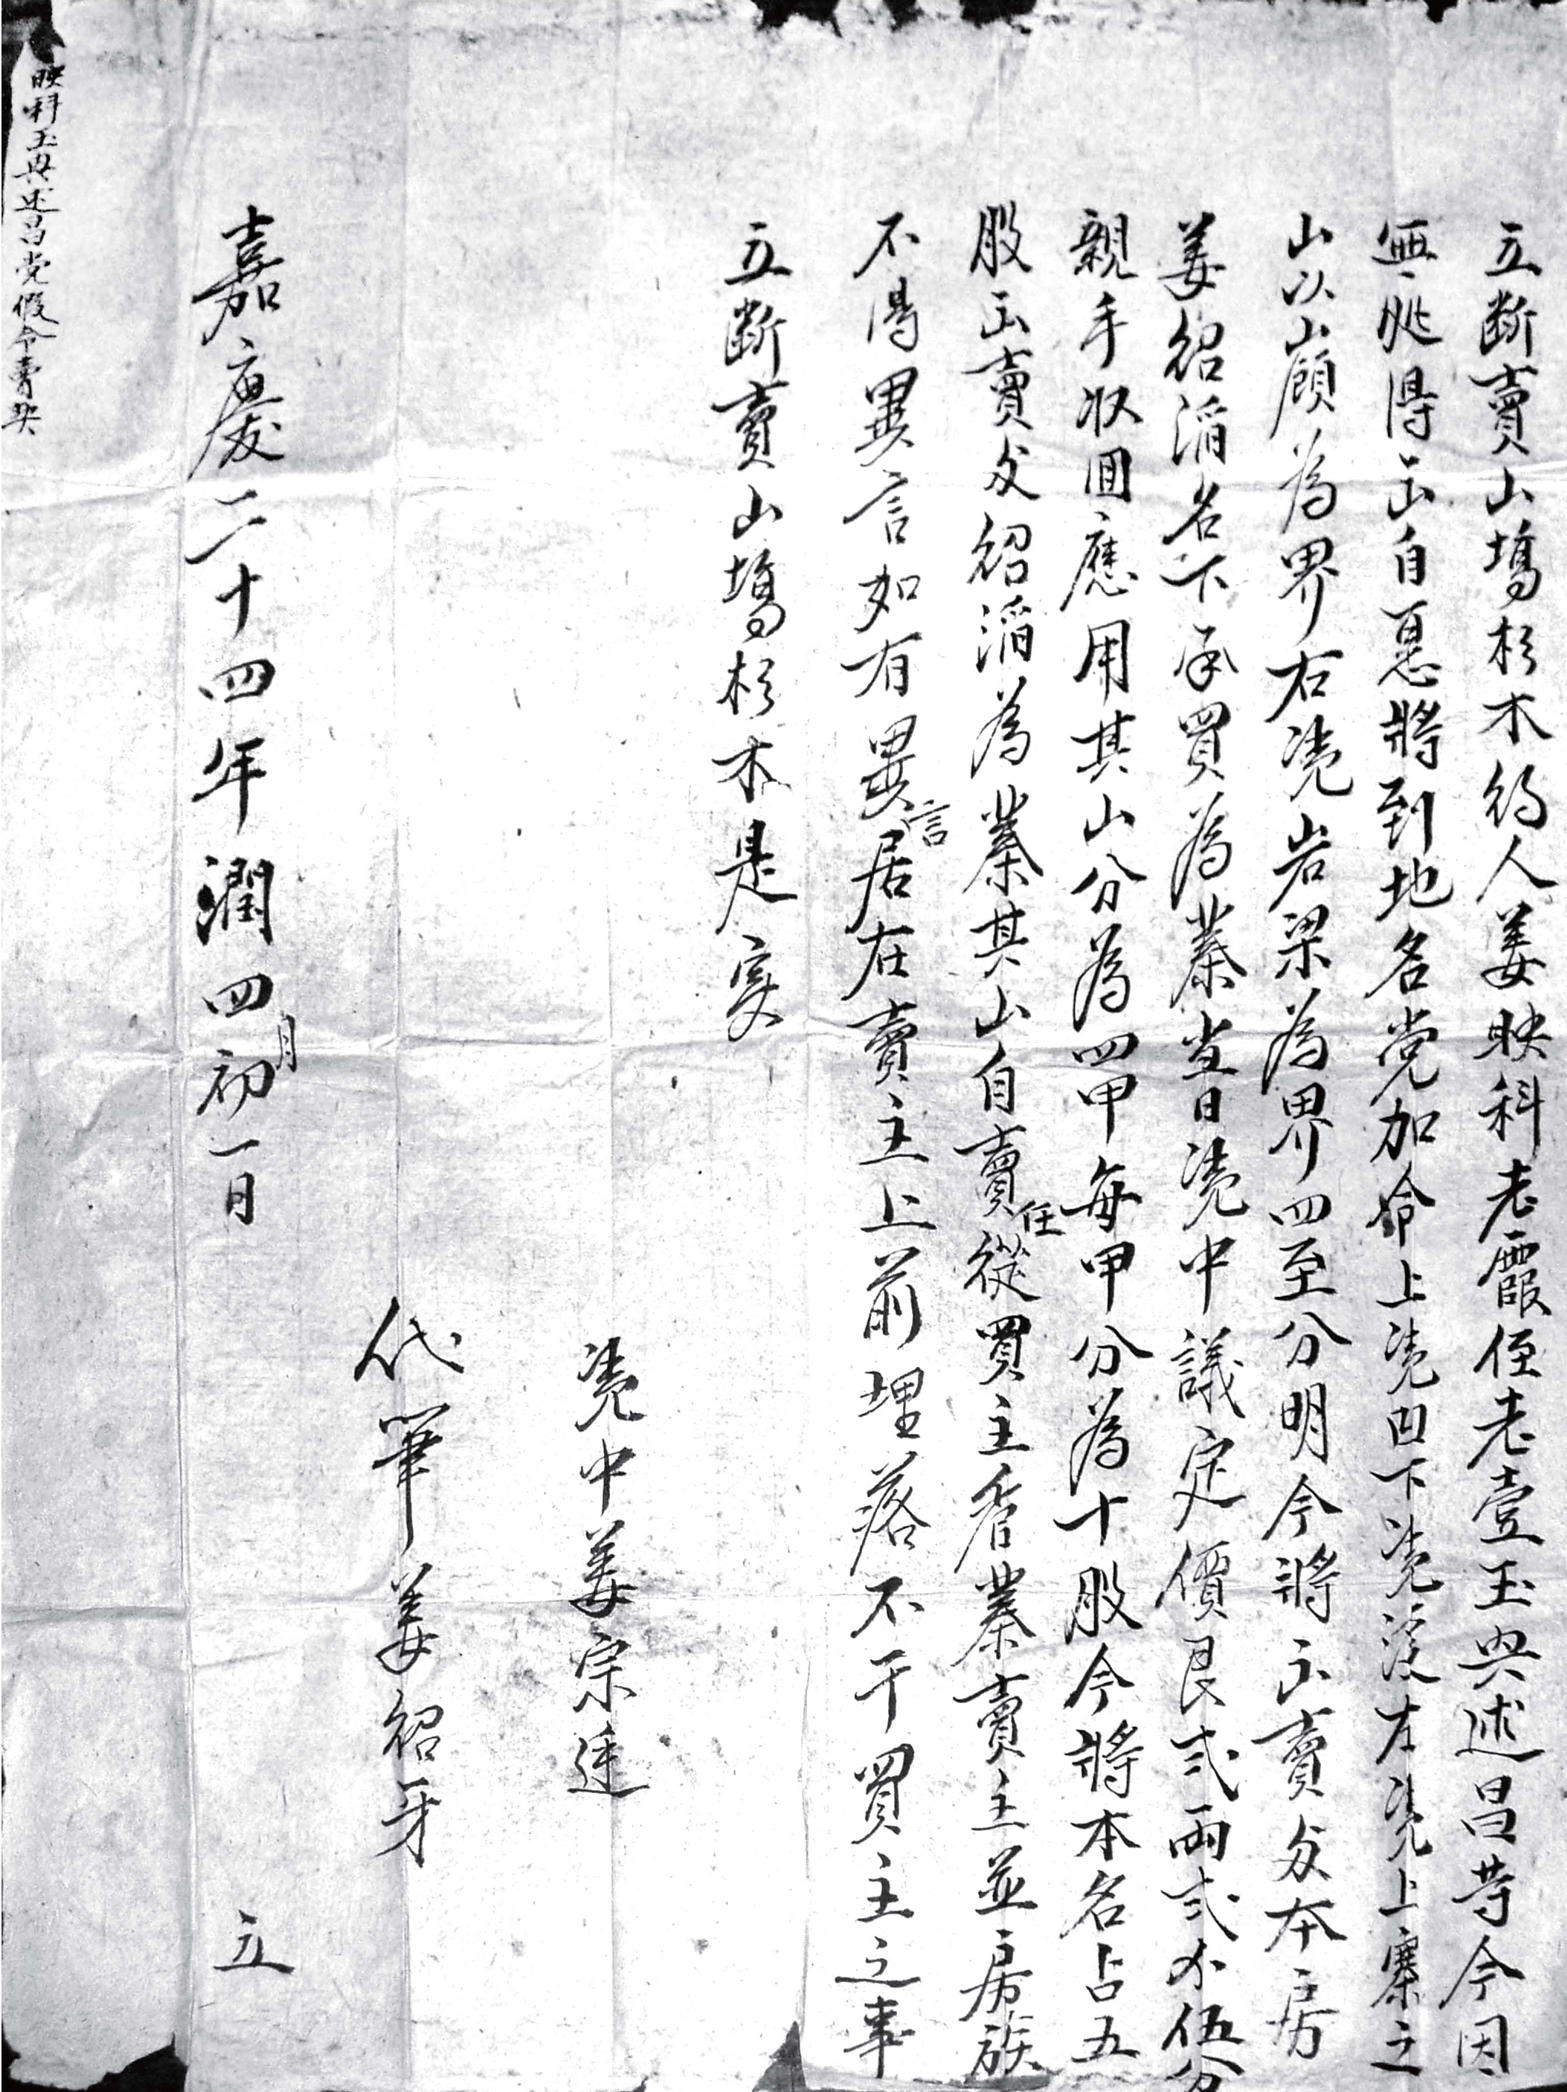 立斷賣山塲杉木約人姜映科老霞侄老壹玉興述昌䓁今因
無出得正自愿將到地名党加令上凴凹下凴溪左凴上寨之
山以山顧為界右凴岩梁為界四至分明今將正賣與本房
姜紹滔名下承買為業當日凴中議定價艮弍兩弍錢伍分
親手收囬應用其山分為四甲每甲分為十股今將本名占五
股正賣與紹滔為業其山自賣任從買主管業賣主並房族
不得異言如有異言居在賣主上前埋落不干買主之事
立斷賣山塲杉木是實
凴中姜宗廷
代筆姜紹牙
嘉慶二十四年潤四月初一日 立
映科玉興述昌党假令賣契